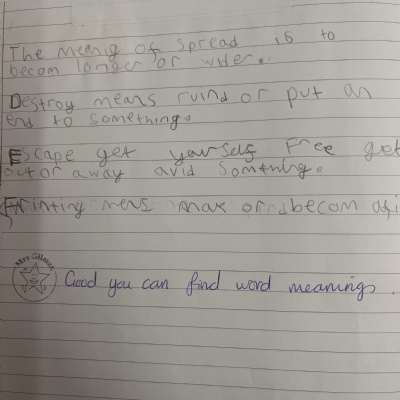 The meanig of spread is to
becom longer or wider.
Destroy means ruind or put an
end to something.
Escape get yourself Free get
out or away avid Somthing.
mens or becom
Mrs Gilmes
Good you can find word meanings.